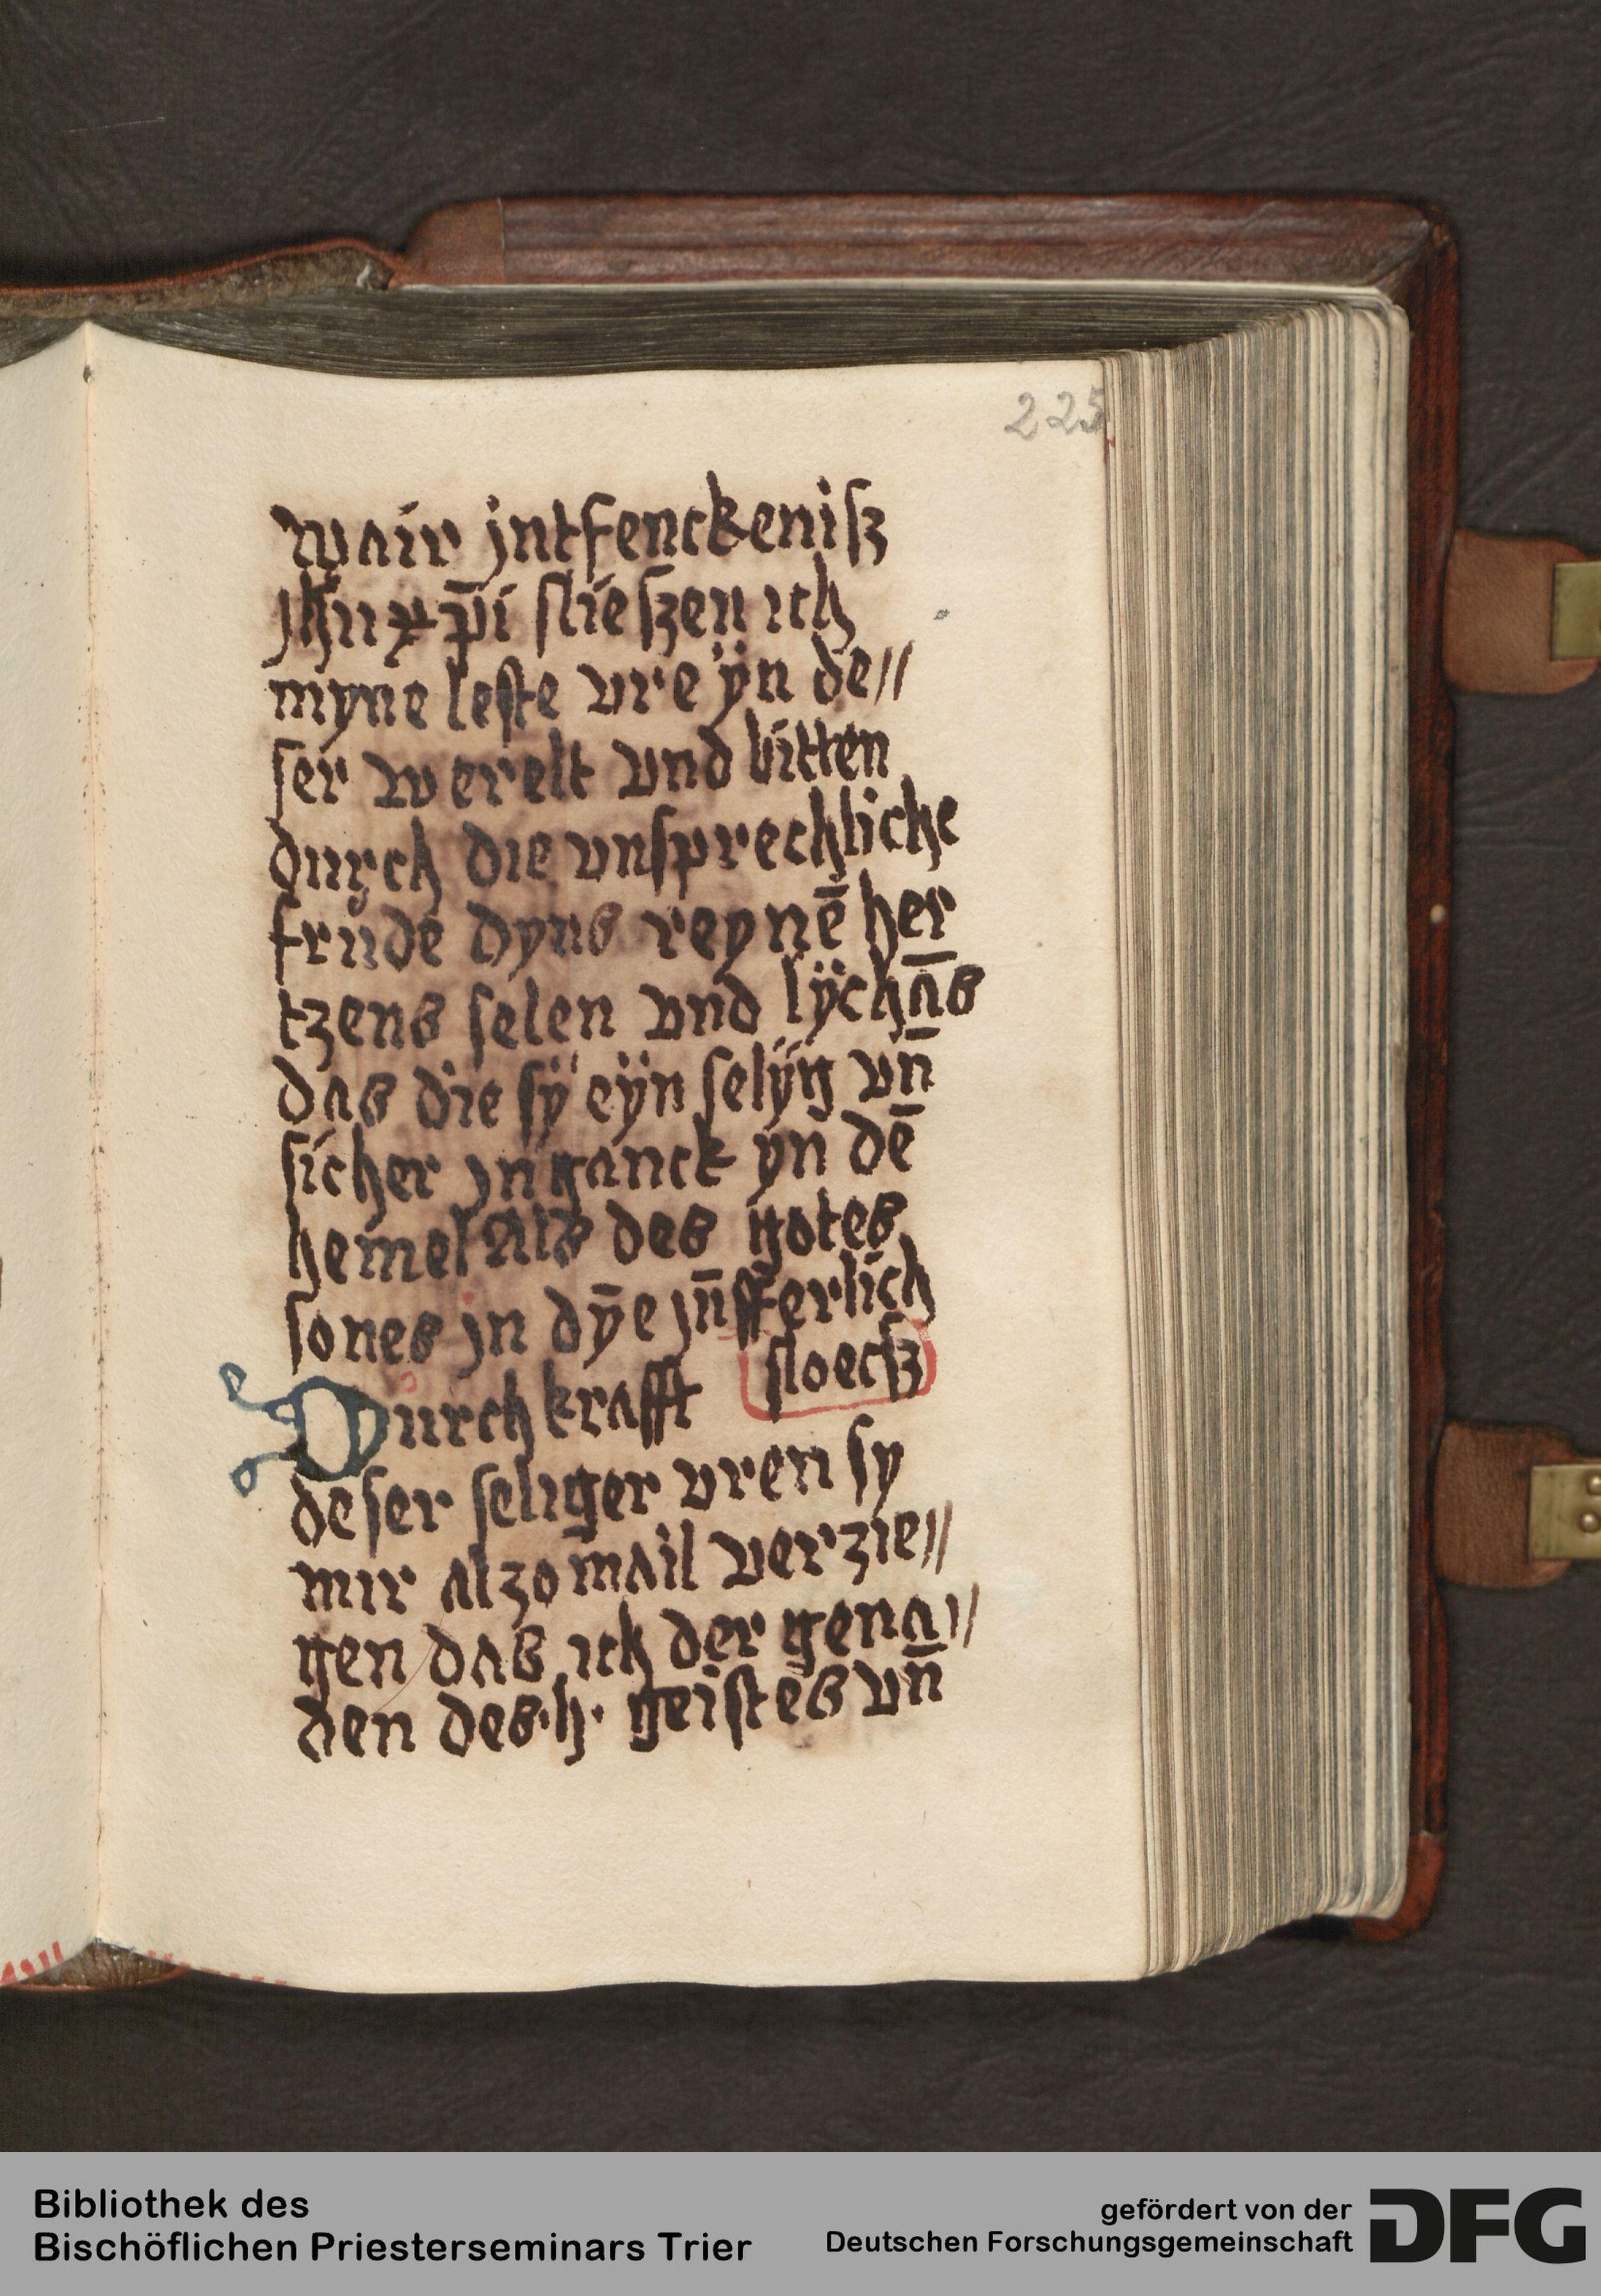 225
wair jntfenckenisz
jhu xp̄i slieszen ich
myne leste vre yn de//
ser werelt vnd bitten
durch die vnsprechliche
frude dyns reynē her
tzens selen vnd lÿchn̄s
das die sÿ eÿn selÿg vn̄
sicher jnganck yn dē
hemel Als des gotes
sones jn dȳe jūfferlich
sloecsz
Durch krafft
deser seliger vren sy
mir alzo mail verzie//
gen das ich der gena//
den des·h· geistes vn̄
Bibliothek des
Bischöflichen Priesterseminars Trier
gefördert von der
Deutschen Forschungsgemeinschaft
DFG